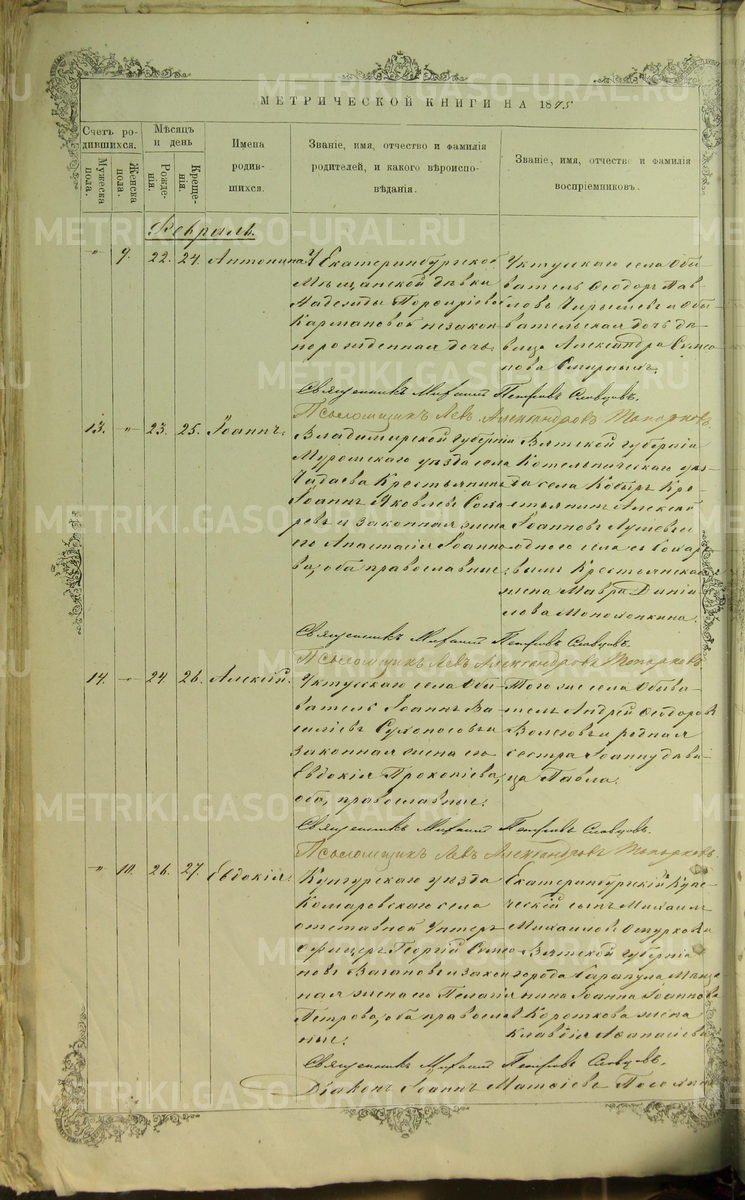 МЕТРИЧЕСКОЙ КНИГИ НА 1875
Счетъ ро-
дившихся.
Мужеска
пола.
Женска
пола.
Мѣсяцъ
и день
Рожде-
нія.
Креще-
нія.
Имена
родив-
шихся.
Званіе, имя, отчество и фамилія
родителей, и какого вѣроиспо-
вѣданія.
Званіе, имя, отчество и фамилія
воспріемниковъ.
Февраль.
" 9. 22. 24. Антонина.
У Екатеринбургской
Мѣщанской дѣвки
Надежды Порфиріевой
Кармановой незакон
норожденная дочь.
Уктусскаго села Обы
ватель Ѳеодоръ Пав
ловъ и Обы
вательская дочь дѣ
вица Александра Симео
нова
Священникъ Михаилъ Петровъ Словцовъ.
Псаломщикъ Левъ Александровъ Топорковъ.
13. " 23. 25. Іоаннъ.
Владимирской губерніи
Муромскаго уѣзда села
Чадаева Крестьянинъ
Іоаннъ Яковлевъ
и законная жена
его Анастасія Іоанно
ва, оба православные.
Вятской губерніи
Котельническаго уѣз
да села Кре
стьянинъ Алексѣй
Іоанновъ
одного села съ
вымъ Крестьянская
жена Мавра Даніи
лова
Священникъ Михаилъ Петровъ Словцовъ.
Псаломщикъ Левъ Александровъ Топорковъ.
14. " 24. 26. Алексій.
Уктусскаго села Обы
ватель Іоаннъ Ва
силіевъ и
законная жена его
Евдокія Прокопіева,
оба православные.
Того же села Обыва
тель Андрей Ѳеодоровъ
и родная
сестра Іоанну дѣви
ца Павла.
Священникъ Михаилъ Петровъ Словцовъ.
Псаломщикъ Левъ Александровъ Топорковъ.
" 10. 26. 27. Евдокія.
Кунгурскаго уѣзда
Комаровскаго села
отставной Унтеръ
Офицеръ Георгій Симео
новъ Вагановъ и закон
ная жена его Пелагія
Петрова, оба православ
ные.
Екатеринбургскій Купе
ческій сынъ Михаилъ
Михаиловъ и
Вятской губерніи
города Сарапула Мѣща
нина Іоанна Іоаннова
Короткова жена
Клавдія Аѳанасіева
Священникъ Михаилъ Петровъ Словцовъ.
Діаконъ Іоаннъ Матѳіевъ
METRIKI.GASO-URAL.RU